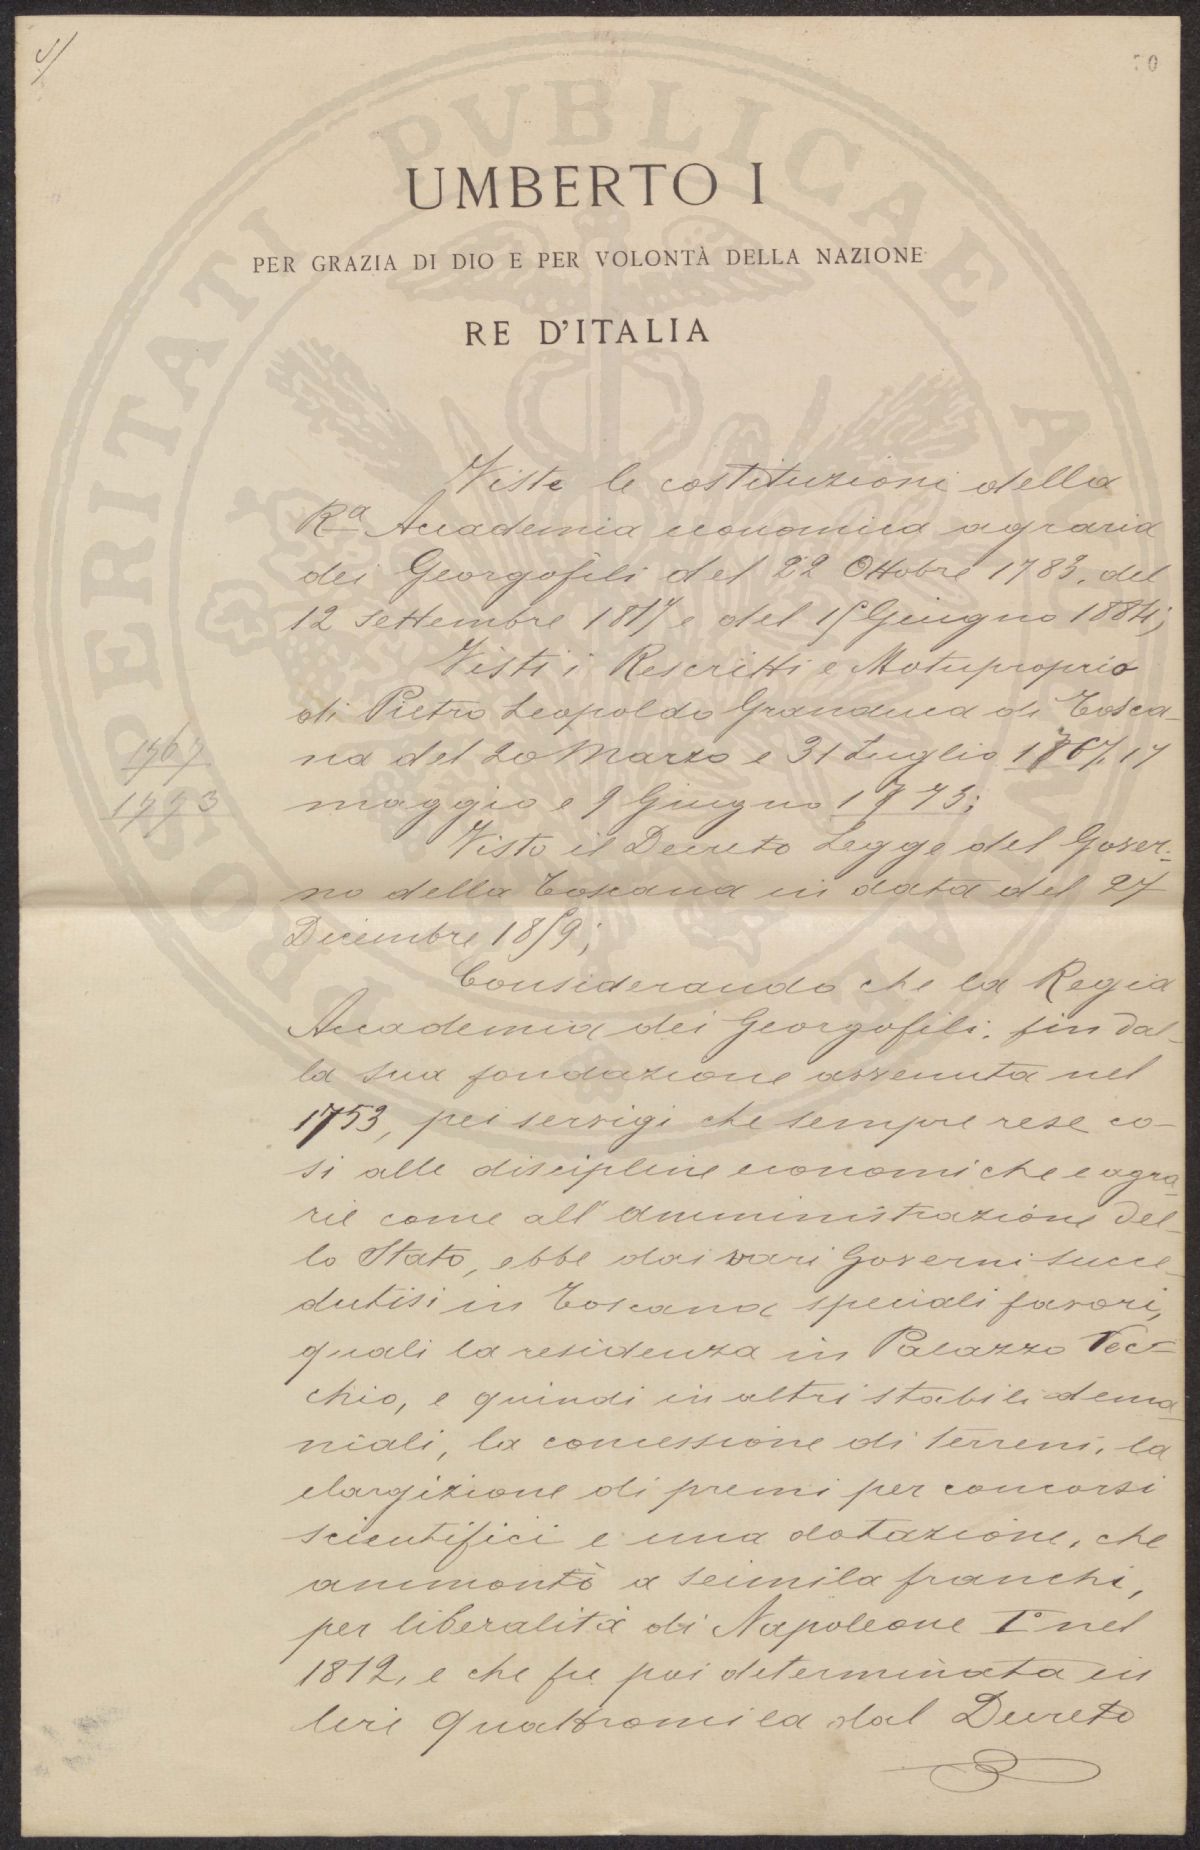 UMBERTO I
PER GRAZIA DI DIO E PER VOLONTÀ DELLA NAZIONE
RE D'ITALIA
Viste le costituzioni della
Rª Accademia economica agraria
dei Georgofili del 22 Ottobre 1783, del
12 settembre 1817 e del 15 Giugno 1884;
Visti i Rescritti e Motuproprio
di Pietro Leopoldo Granduca di Tosca-
na del 20 Marzo e 31 Luglio 1767, 17
1767
maggio e 9 Giugno 1773;
1773
Visto il Decreto Legge del Gover-
no della Toscana in data del 27
Dicembre 1859;
Considerando che la Regia
Accademia dei Georgofili, fin dal-
la sua fondazione avvenuta nel
1753, pei servigi che sempre rese co-
sì alle discipline economiche e agra-
rie come all'amministrazione del-
lo Stato, ebbe dai vari Governi succe-
dutisi in Toscana speciali favori,
quali la residenza in Palazzo Vec-
chio, e quindi in altri stabili dema-
niali, la concessione di terreni, la
elargizione di premi per concorsi
scientifici e una dotazione, che
ammontò a seimila franchi,
per liberalità di Napoleone I° nel
1812, e che fu poi determinata in
lire quattromila dal Decreto
PROSPERITATI PVBLICAE AVGENDAE